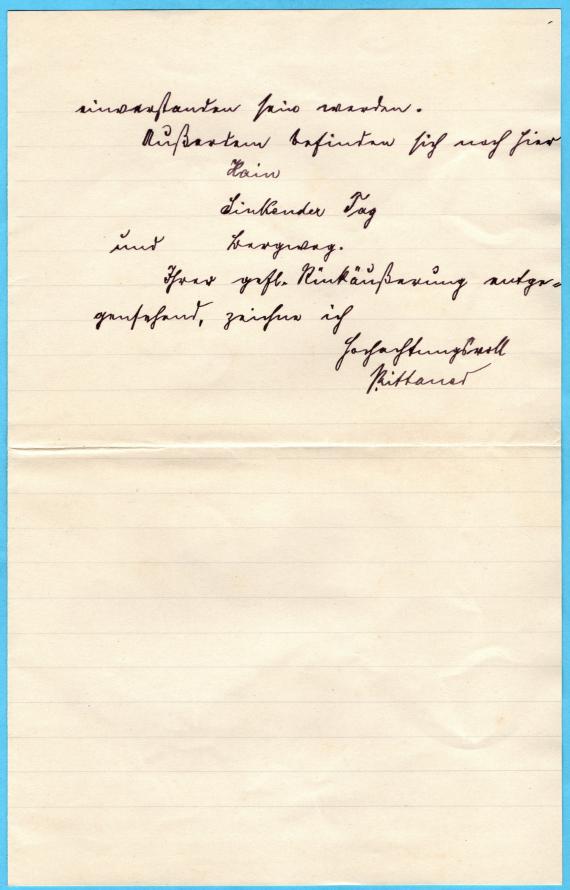 einverstanden sein werden.
Außerdem befinden sich noch hier
Hain
Sinkender Tag
und Bergweg.
Ihrer gefl. Rückäußerung entge-
gensehend, zeichne ich
Hochachtungsvoll